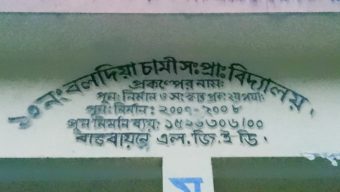 ২৩ নং বলদিয়া চামী সঃ প্রাঃ বিদ্যালয়
প্রকল্পের নামঃ
পুনঃ নির্মান ও সংস্কার প্রকঃ
পুনঃ নির্মান : ২০০৭-২০০৮
পুনঃ নির্মান ব্যয়: ১৫২৬৩০৬/০০
বাস্তবায়নে এল. জি. ই ডি.